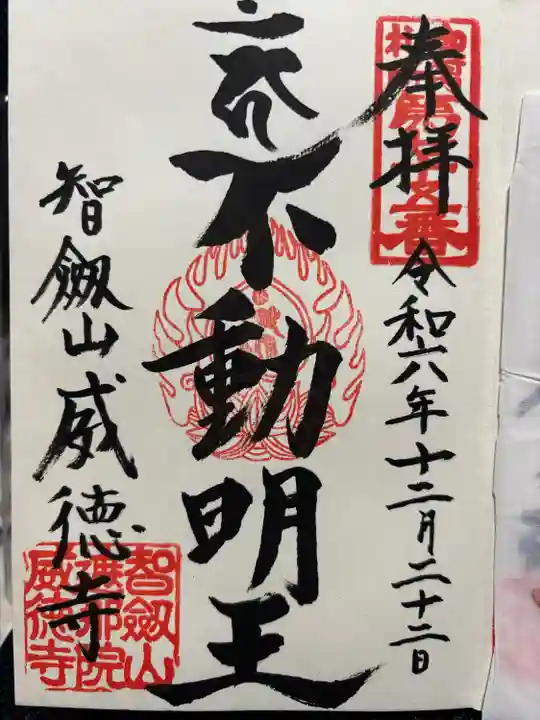 奉拝
令和六年十二月二十二日
不動明王
智劔山威徳寺
智劔山
遮那院
威徳寺